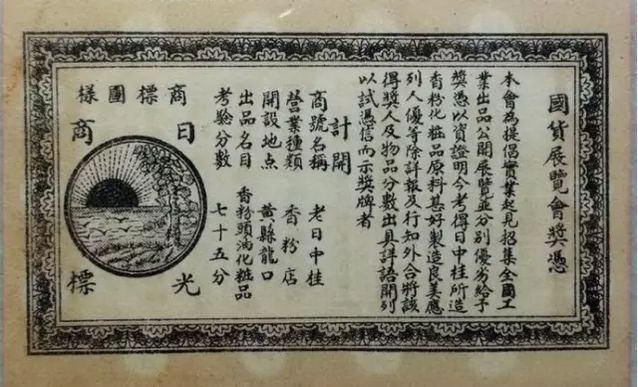 國貨展覽會奬憑
本會為提倡實業起見招集全國工
業出品公開展覽並分別優劣給予
奬憑以資證明今考得日中桂所造
香粉化粧品原料甚好製造良美應
列人優等除詳報及行知外合將該
得奬人及物品分數出具詳語開列
以試憑信而示奬牌者
計開
商號名稱 老日中桂
營業種類 香粉店
開設地点 黃縣龍口
出品名目 香粉頭油化粧品
考驗分數 七十五分
商標圖樣
日光
商標